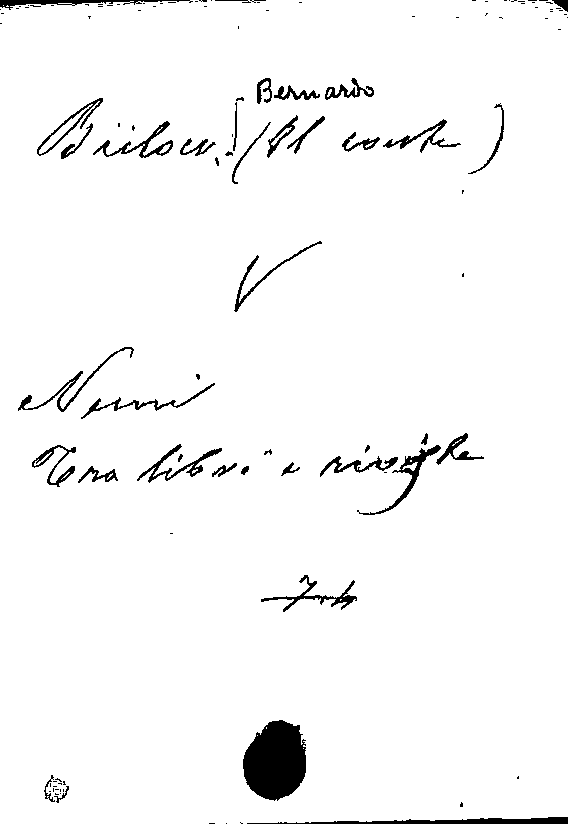 Bernardo
Bülow. (Il conte)
V
Nemi
Tra libri e riviste